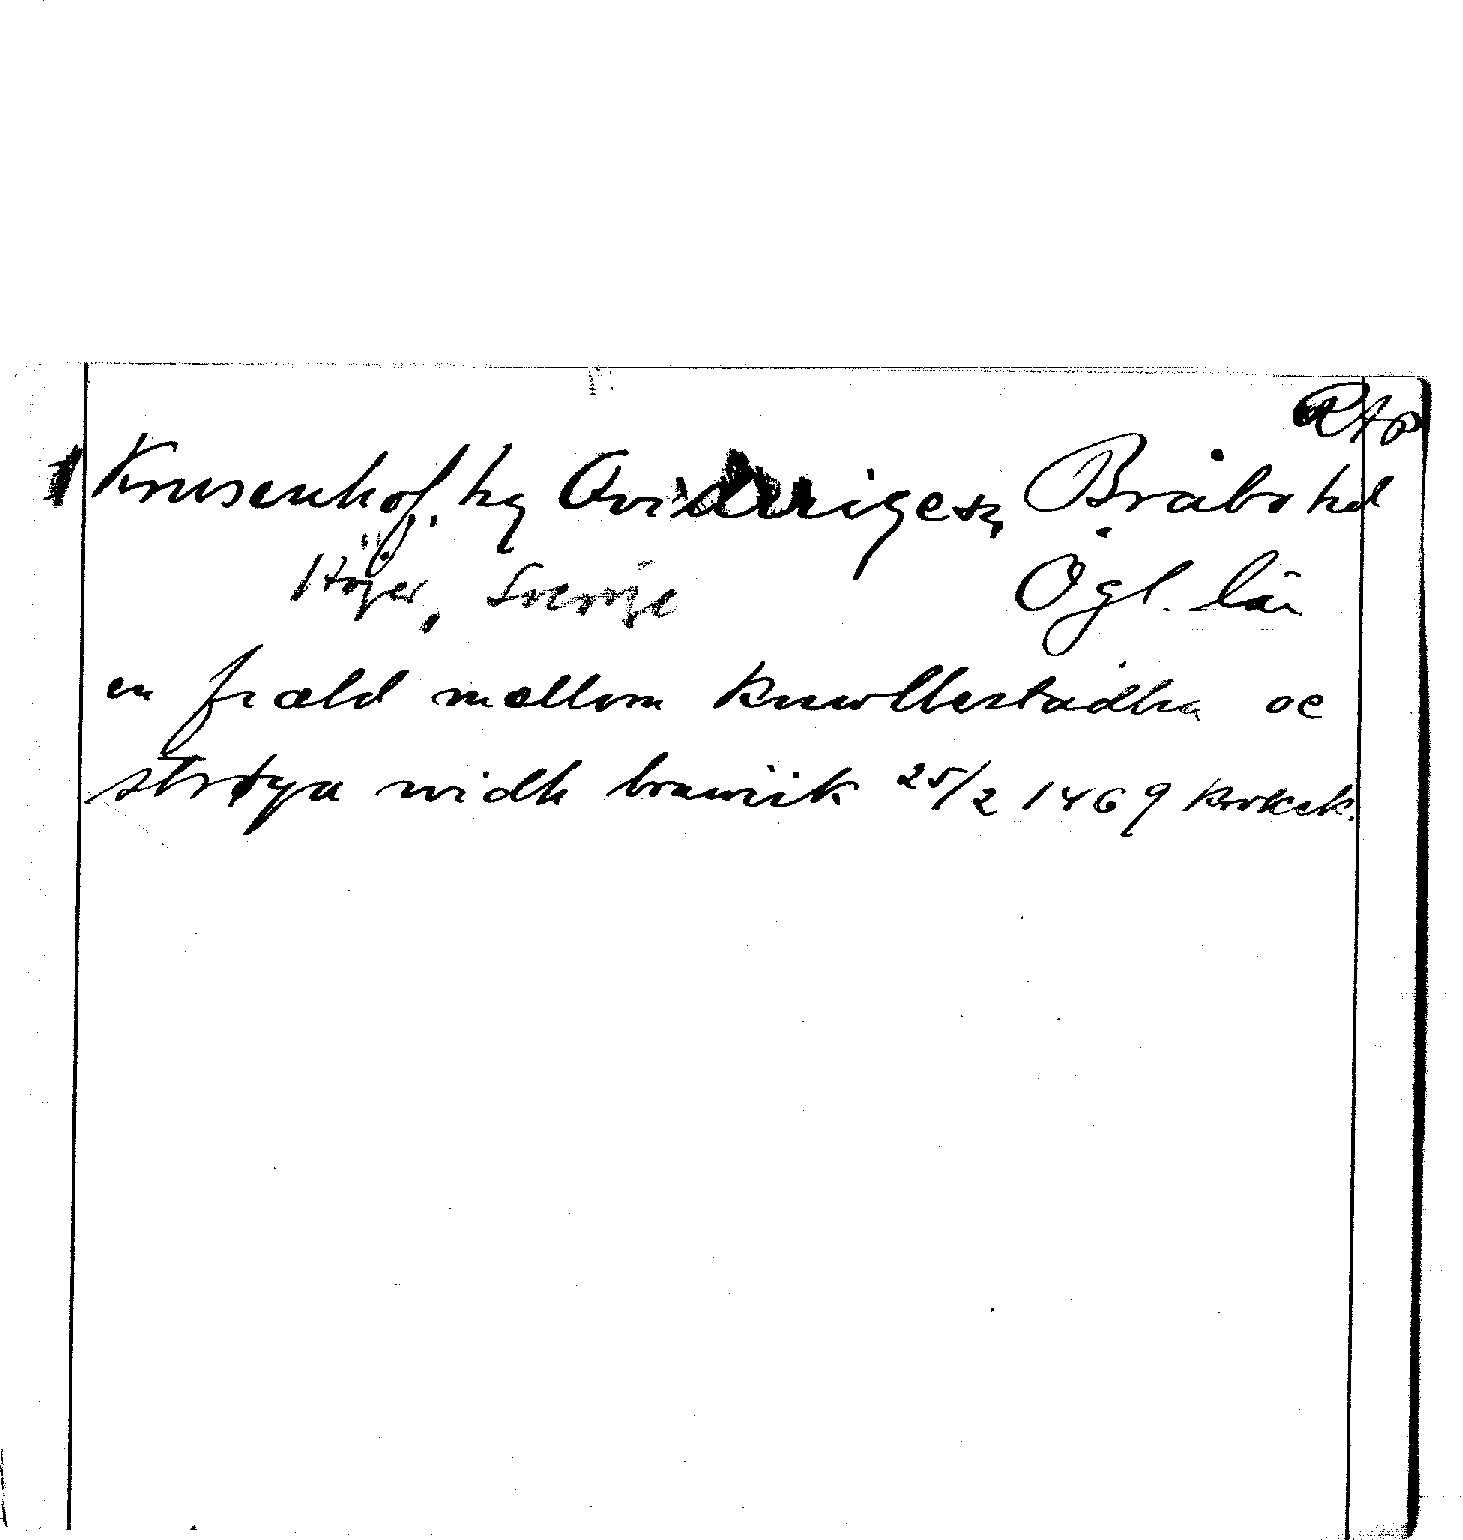 RAp
Krusenhof, hg Qvillingesn Bråbo hd
Höjer, Sverige Ögl. län
en fiæld mællom knwllestadha oc
strøya widh brawiik 25/2 1469 Krokek.